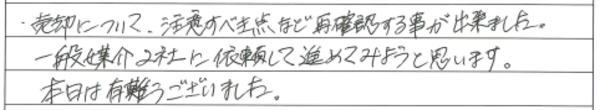 ・売却について、注意すべき点など再確認する事が出来ました。
一般媒介2社に依頼して進めてみようと思います。
本日は有難うございました。